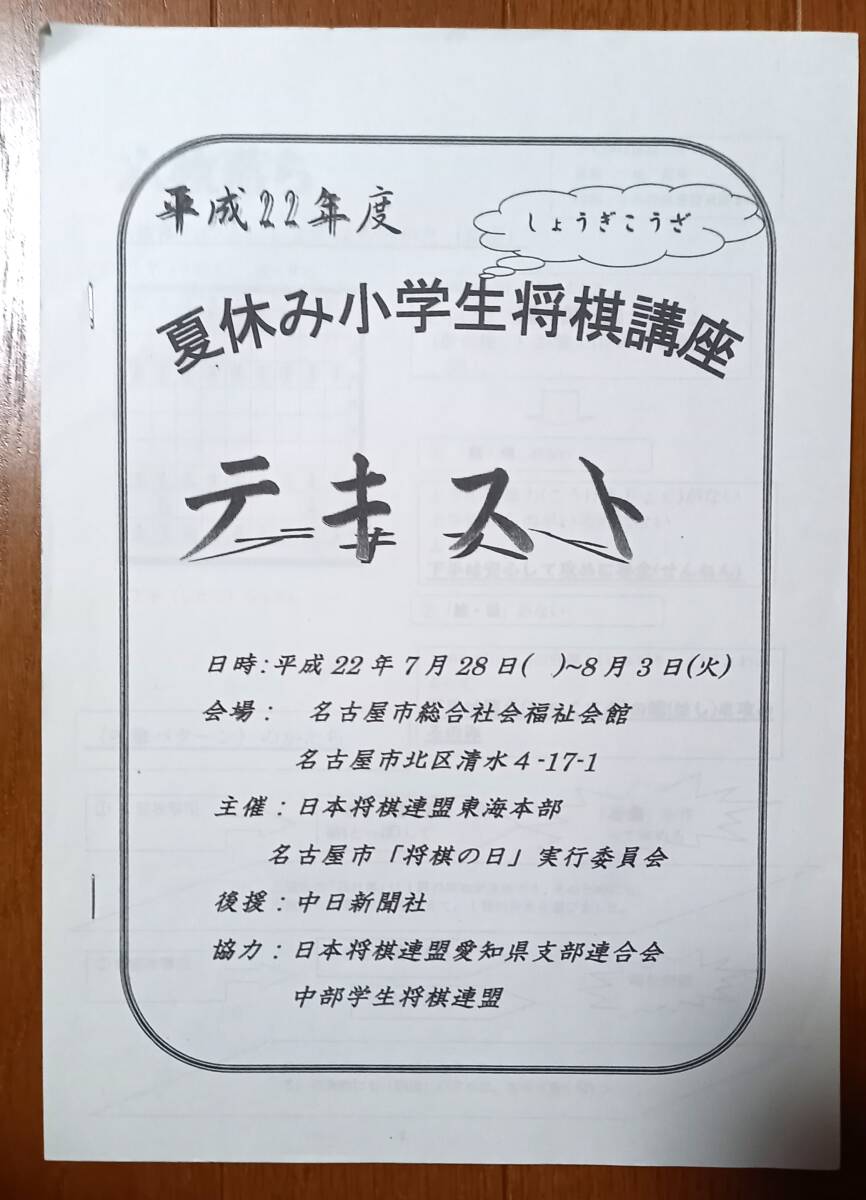 平成22年度
しょうぎこうざ
夏休み小学生将棋講座
テキスト
日時:平成22年7月28日( )~8月3日(火)
会場： 名古屋市総合社会福祉会館
名古屋市北区清水4-17-1
主催：日本将棋連盟東海本部
名古屋市「将棋の日」実行委員会
後援：中日新聞社
協力：日本将棋連盟愛知県支部連合会
中部学生将棋連盟